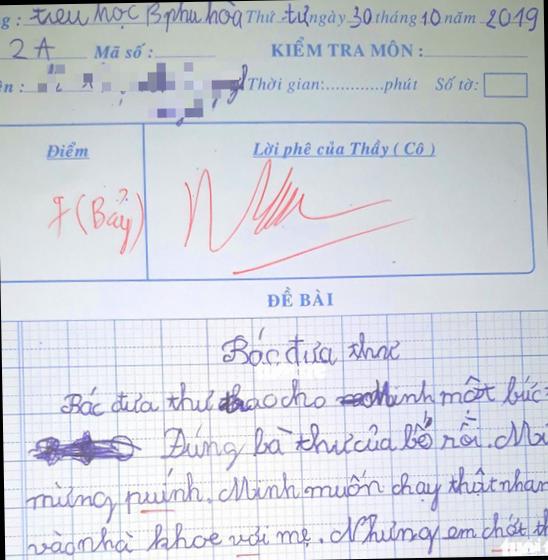 g : tiểu học B phú hòa Thứ tư ngày 30 tháng 10 năm 2019
2A Mã số : KIỂM TRA MÔN :
ên : Thời gian:............phút Số tờ:
Điểm
Lời phê của Thầy ( Cô )
7 (Bảy)
ĐỀ BÀI
Bác đưa thư
Bác đưa thư trao cho Minh một bức
Đúng là thư của bố rồi. Mi
mừng puính. Minh muốn chạy thật nhan
vào nhà khoe với mẹ. Nhưng em chợt th